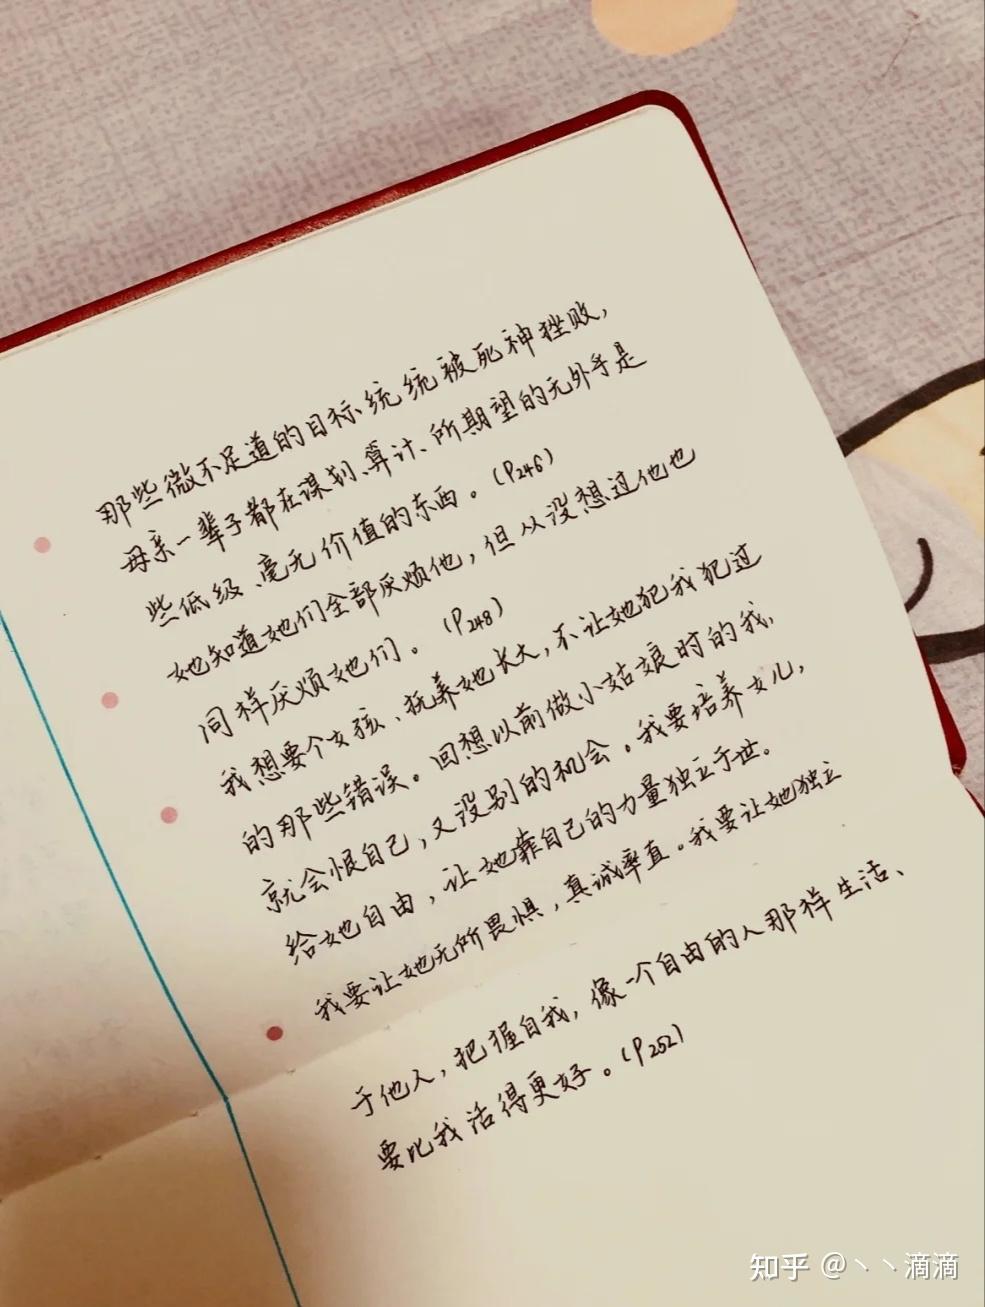 那些微不足道的目标、统统被死神挫败，
母亲一辈子都在谋划、算计、所期望的无外乎是
些低级、毫无价值的东西。(P246)
她知道她们全部厌烦他，但从没想过他也
同样厌烦她们。(P248)
我想要个女孩、抚养她长大，不让她犯我犯过
的那些错误。回想以前做小姑娘时的我，
就会恨自己，又没别的机会。我要培养女儿，
给她自由，让她靠自己的力量独立于世。
我要让她无所畏惧，真诚率直。我要让她独立
于他人，把握自我，像一个自由的人那样生活、
要比我活得更好。(P252)
知乎 @丶丶滴滴